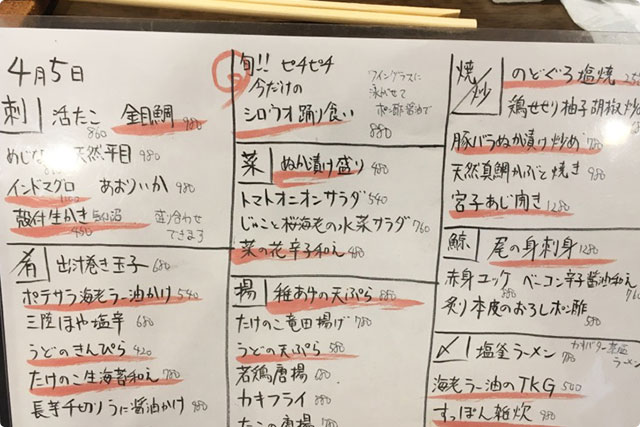 4月5日
刺 活たこ 860 金目鯛 980
めじな 天然平目 980
インドマグロ あおりいか 980
殻付生かき 450 盛り合わせ
できます
肴 出汁巻き玉子 680
ポテサラ海老ラー油かけ 540
三陸ほや塩辛 680
うどのきんぴら 420
たけのこ生海苔和え 780
長芋千切りうに醤油かけ 980
旬!! ピチピチ
今だけの
シロウオ踊り食い
ワイングラスに
泳がせて
ポン酢醤油で
880
菜 ぬか漬け盛り 480
トマトオニオンサラダ 540
じゃこと桜海老の水菜サラダ 760
菜の花辛子和え 480
揚 稚あゆの天ぷら 880
たけのこ竜田揚げ 780
うどの天ぷら 580
若鶏唐揚 680
カキフライ
たこの唐揚 780
焼/炒 のどぐろ塩焼
鶏せせり柚子胡椒炒め
豚バラぬか漬け炒め 780
天然真鯛かぶと焼き 980
宮子あじ開き 1280
鯨 尾の身刺身 1280
赤身ユッケ ベーコン辛子醤油和え
炙り本皮のおろしポン酢 580
〆 塩釜ラーメン 780
海老ラー油のTKG 500
すっぽん雑炊 980